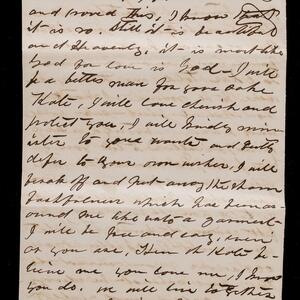 and proved this, I know that
it is so. Still it is beautiful
and Heavenly, it is most like
God for love is God – I will
be a better man for your sake
Kate, I will love cherish and
protect you, I will kindly min-
ister to your wants and
defer to your own wishes, I will
break off and put away the sham
which has been
around me like unto a garment
I will be free and easy, even
as you are, Then O Kate be-
lieve me you love me, I know
you do. we will live together